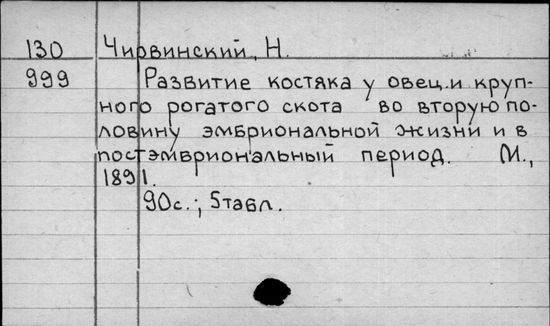 130 Чирвинский, Н.
999 Развитие костяка у овец и круп-
ного рогатого скота во вторую по-
ловину эмбриональной жизни и в
постэмбриональный период. М.,
1891.
90с.; 5табл.